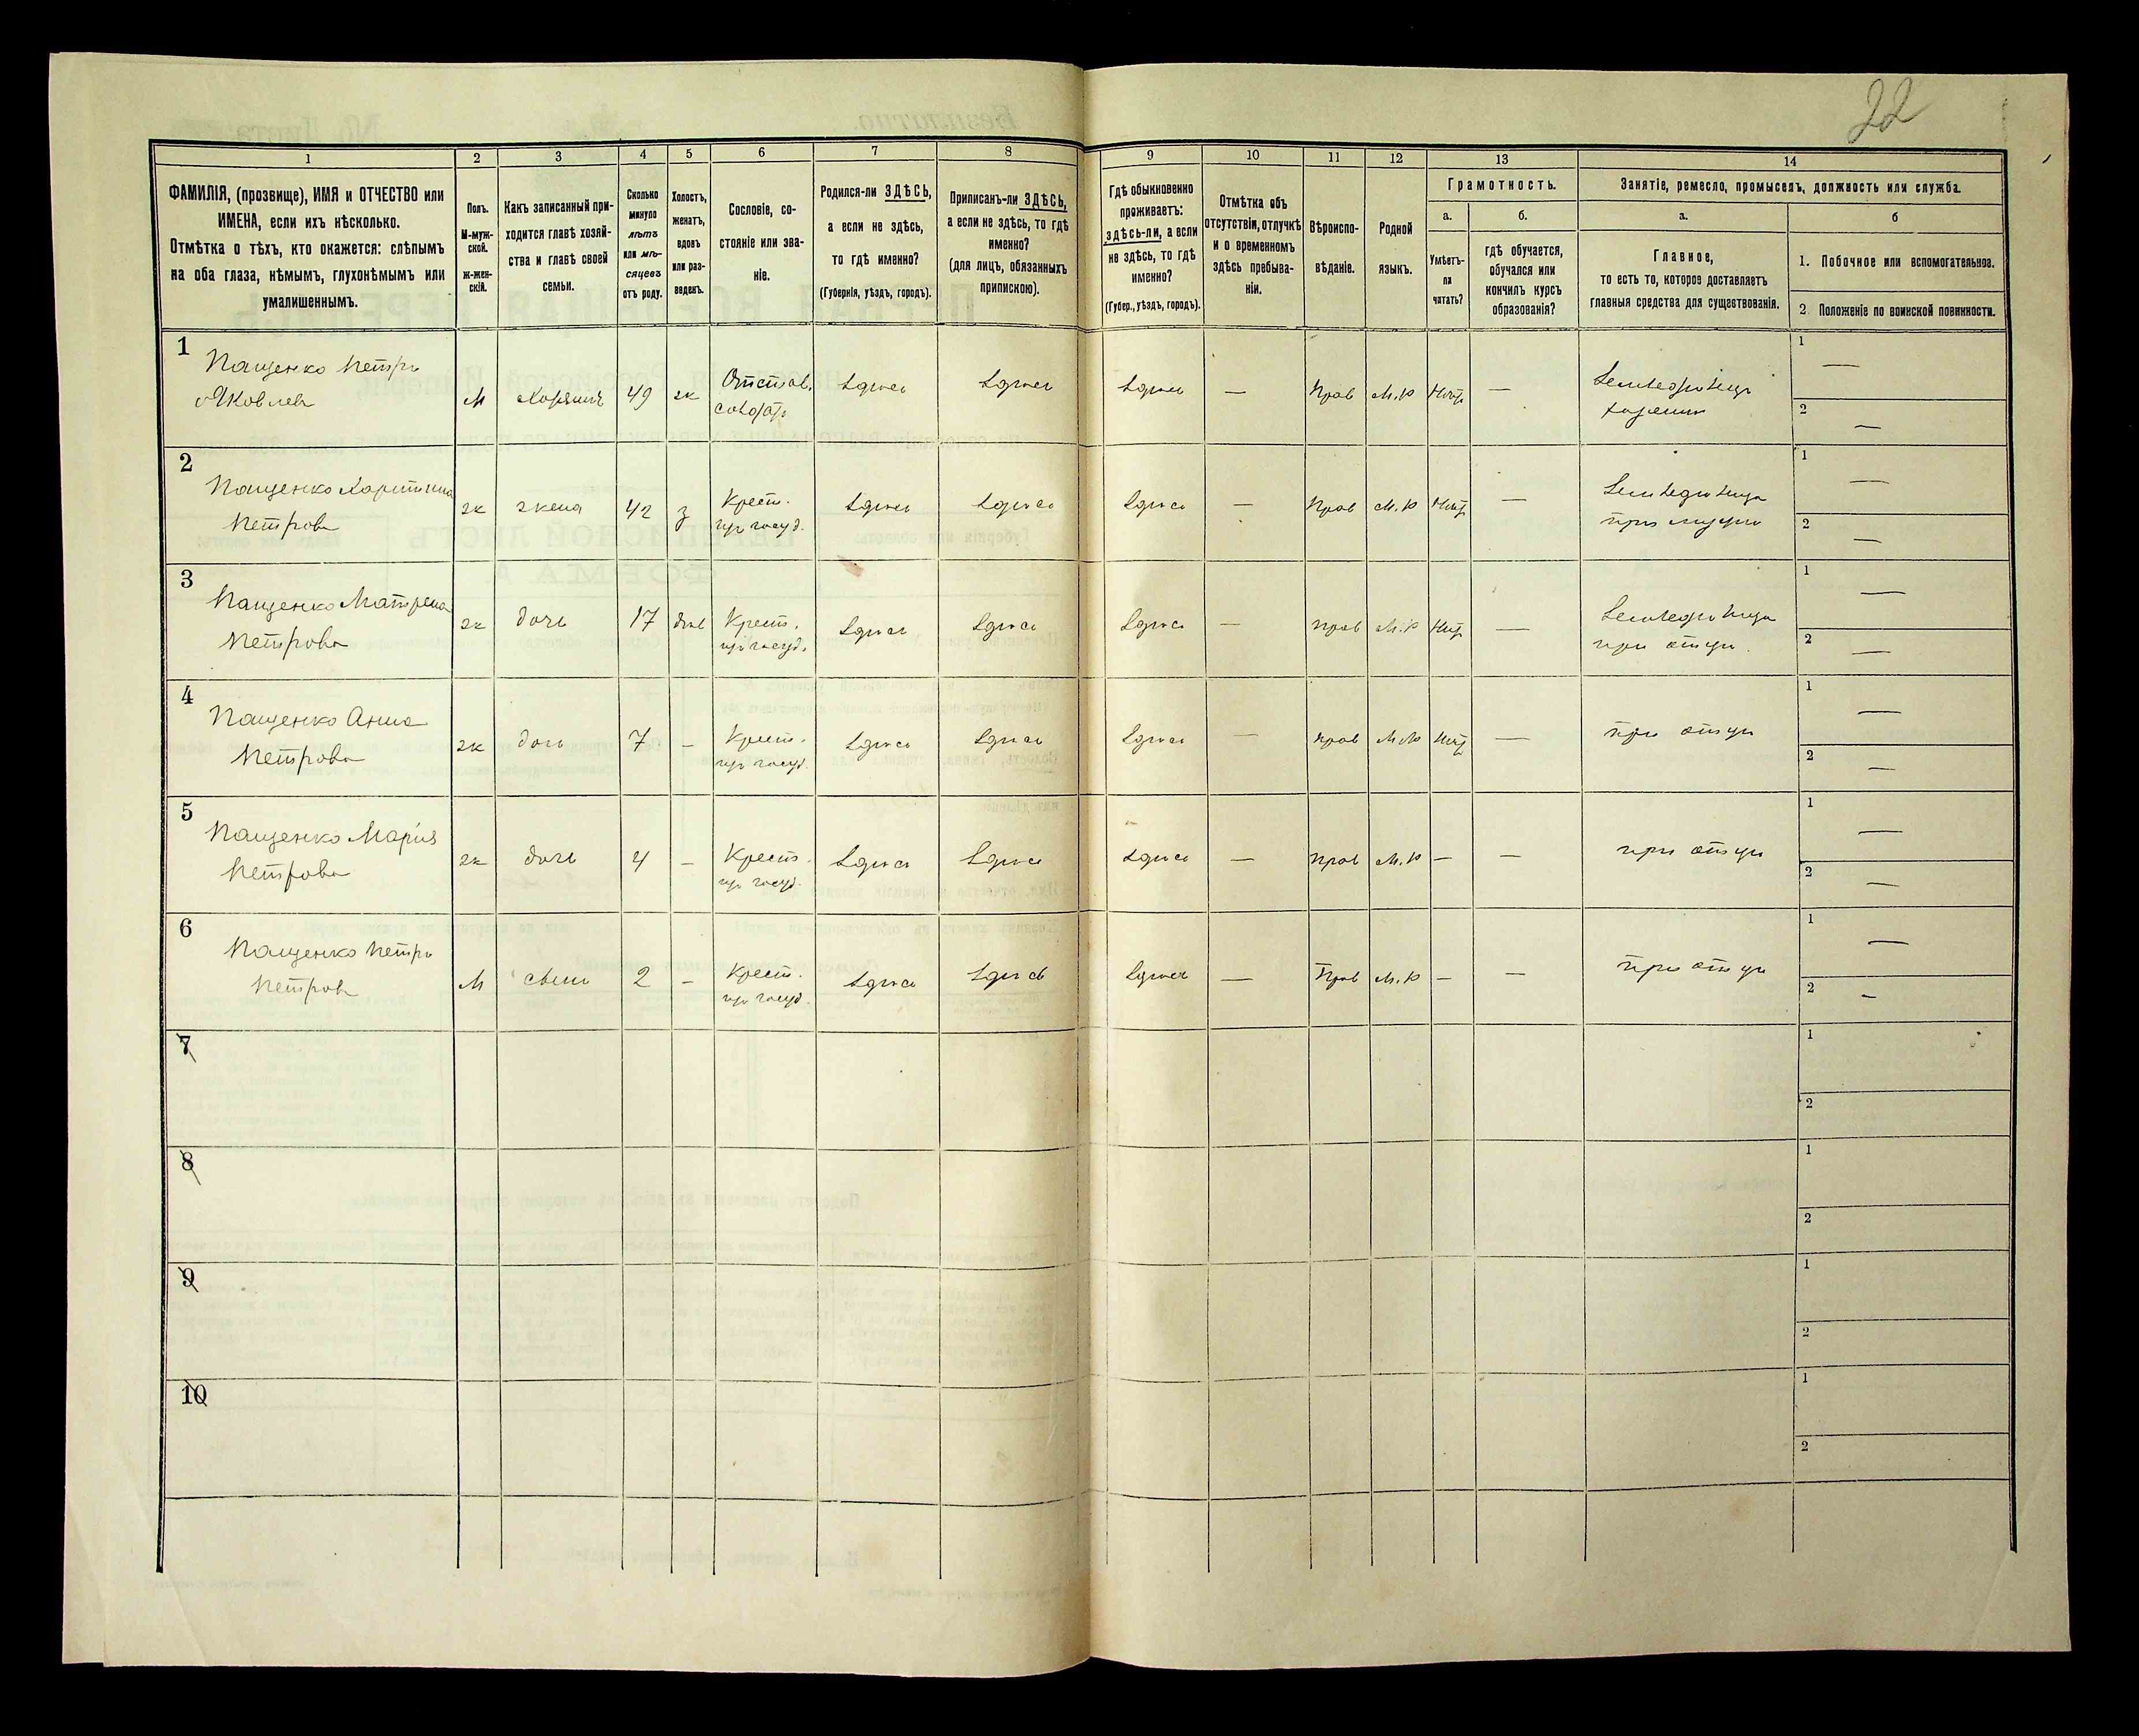 22
1 2 3 4 5 6 7 8 9 10 11 12 13 14
ФАМИЛІЯ, (прозвище), ИМЯ и ОТЧЕСТВО или
ИМЕНА, если ихъ нѣсколько.
Отмѣтка о тѣхъ, кто окажется: слѣпымъ
на оба глаза, нѣмымъ, глухонѣмымъ или
умалишеннымъ.
Полъ.
М-муж-
ской.
Ж-жен-
скій.
Какъ записанный при-
ходится главѣ хозяй-
ства и главѣ своей
семьи.
Сколько
минуло
лѣтъ
или мѣ-
сяцевъ
отъ роду.
Холостъ,
женатъ,
вдовъ
или раз-
веденъ.
Сословіе, со-
стояніе или зва-
ніе.
Родился-ли ЗДѢСЬ,
а если не здѣсь,
то гдѣ именно?
(Губернія, уѣздъ, городъ).
Приписанъ-ли ЗДѢСЬ,
а если не здѣсь, то гдѣ
именно?
(для лицъ, обязанныхъ
припискою).
Гдѣ обыкновенно
проживаетъ:
здѣсь-ли, а если
не здѣсь, то гдѣ
именно?
(Губер., уѣздъ, городъ).
Отмѣтка объ
отсутствіи, отлучкѣ
и о временномъ
здѣсь пребыва-
ніи.
Вѣроиспо-
вѣданіе.
Родной
языкъ.
Грамотность.
а. б.
Умѣетъ-
ли
читать?
гдѣ обучается,
обучался или
кончилъ курсъ
образованія?
Занятіе, ремесло, промыселъ, должность или служба.
а. б
Главное,
то есть то, которое доставляетъ
главныя средства для существованія.
1. Побочное или вспомогательное.
2 Положеніе по воинской повинности.
1 Пащенко Петръ М Хозяинъ 49 ж Отстав. здѣсь здѣсь здѣсь — Прав М.Р Нѣтъ — 1 —
Яковлевъ солдатъ хозяинъ 2 —
2 Пащенко Харитина ж жена 42 з Крест. здѣсь здѣсь здѣсь — Прав М.Р Нѣтъ — 1 —
Петрова изъ госуд. при мужѣ 2 —
3 Пащенко Матрена ж дочь 17 дѣв Крест. здѣсь здѣсь здѣсь — прав М.Р Нѣтъ — 1 —
Петрова изъ госуд. при отцѣ 2 —
4 Пащенко Анна ж дочь 7 – Крест. здѣсь здѣсь здѣсь — прав М.Р Нѣтъ — при отцѣ 1 —
Петрова изъ госуд. 2 —
5 Пащенко Марія ж дочь 4 – Крест. здѣсь здѣсь здѣсь — прав М.Р – — при отцѣ 1 —
Петрова изъ госуд. 2 —
6 Пащенко Петръ М сынъ 2 – Крест. здѣсь здѣсь здѣсь — Прав М.Р – — при отцѣ 1 —
Петровъ изъ госуд. 2 –
7 1
2
8 1
2
9 1
2
10 1
2